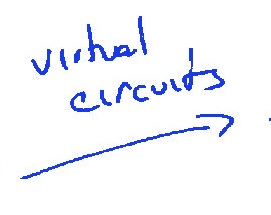 virtual
circuits